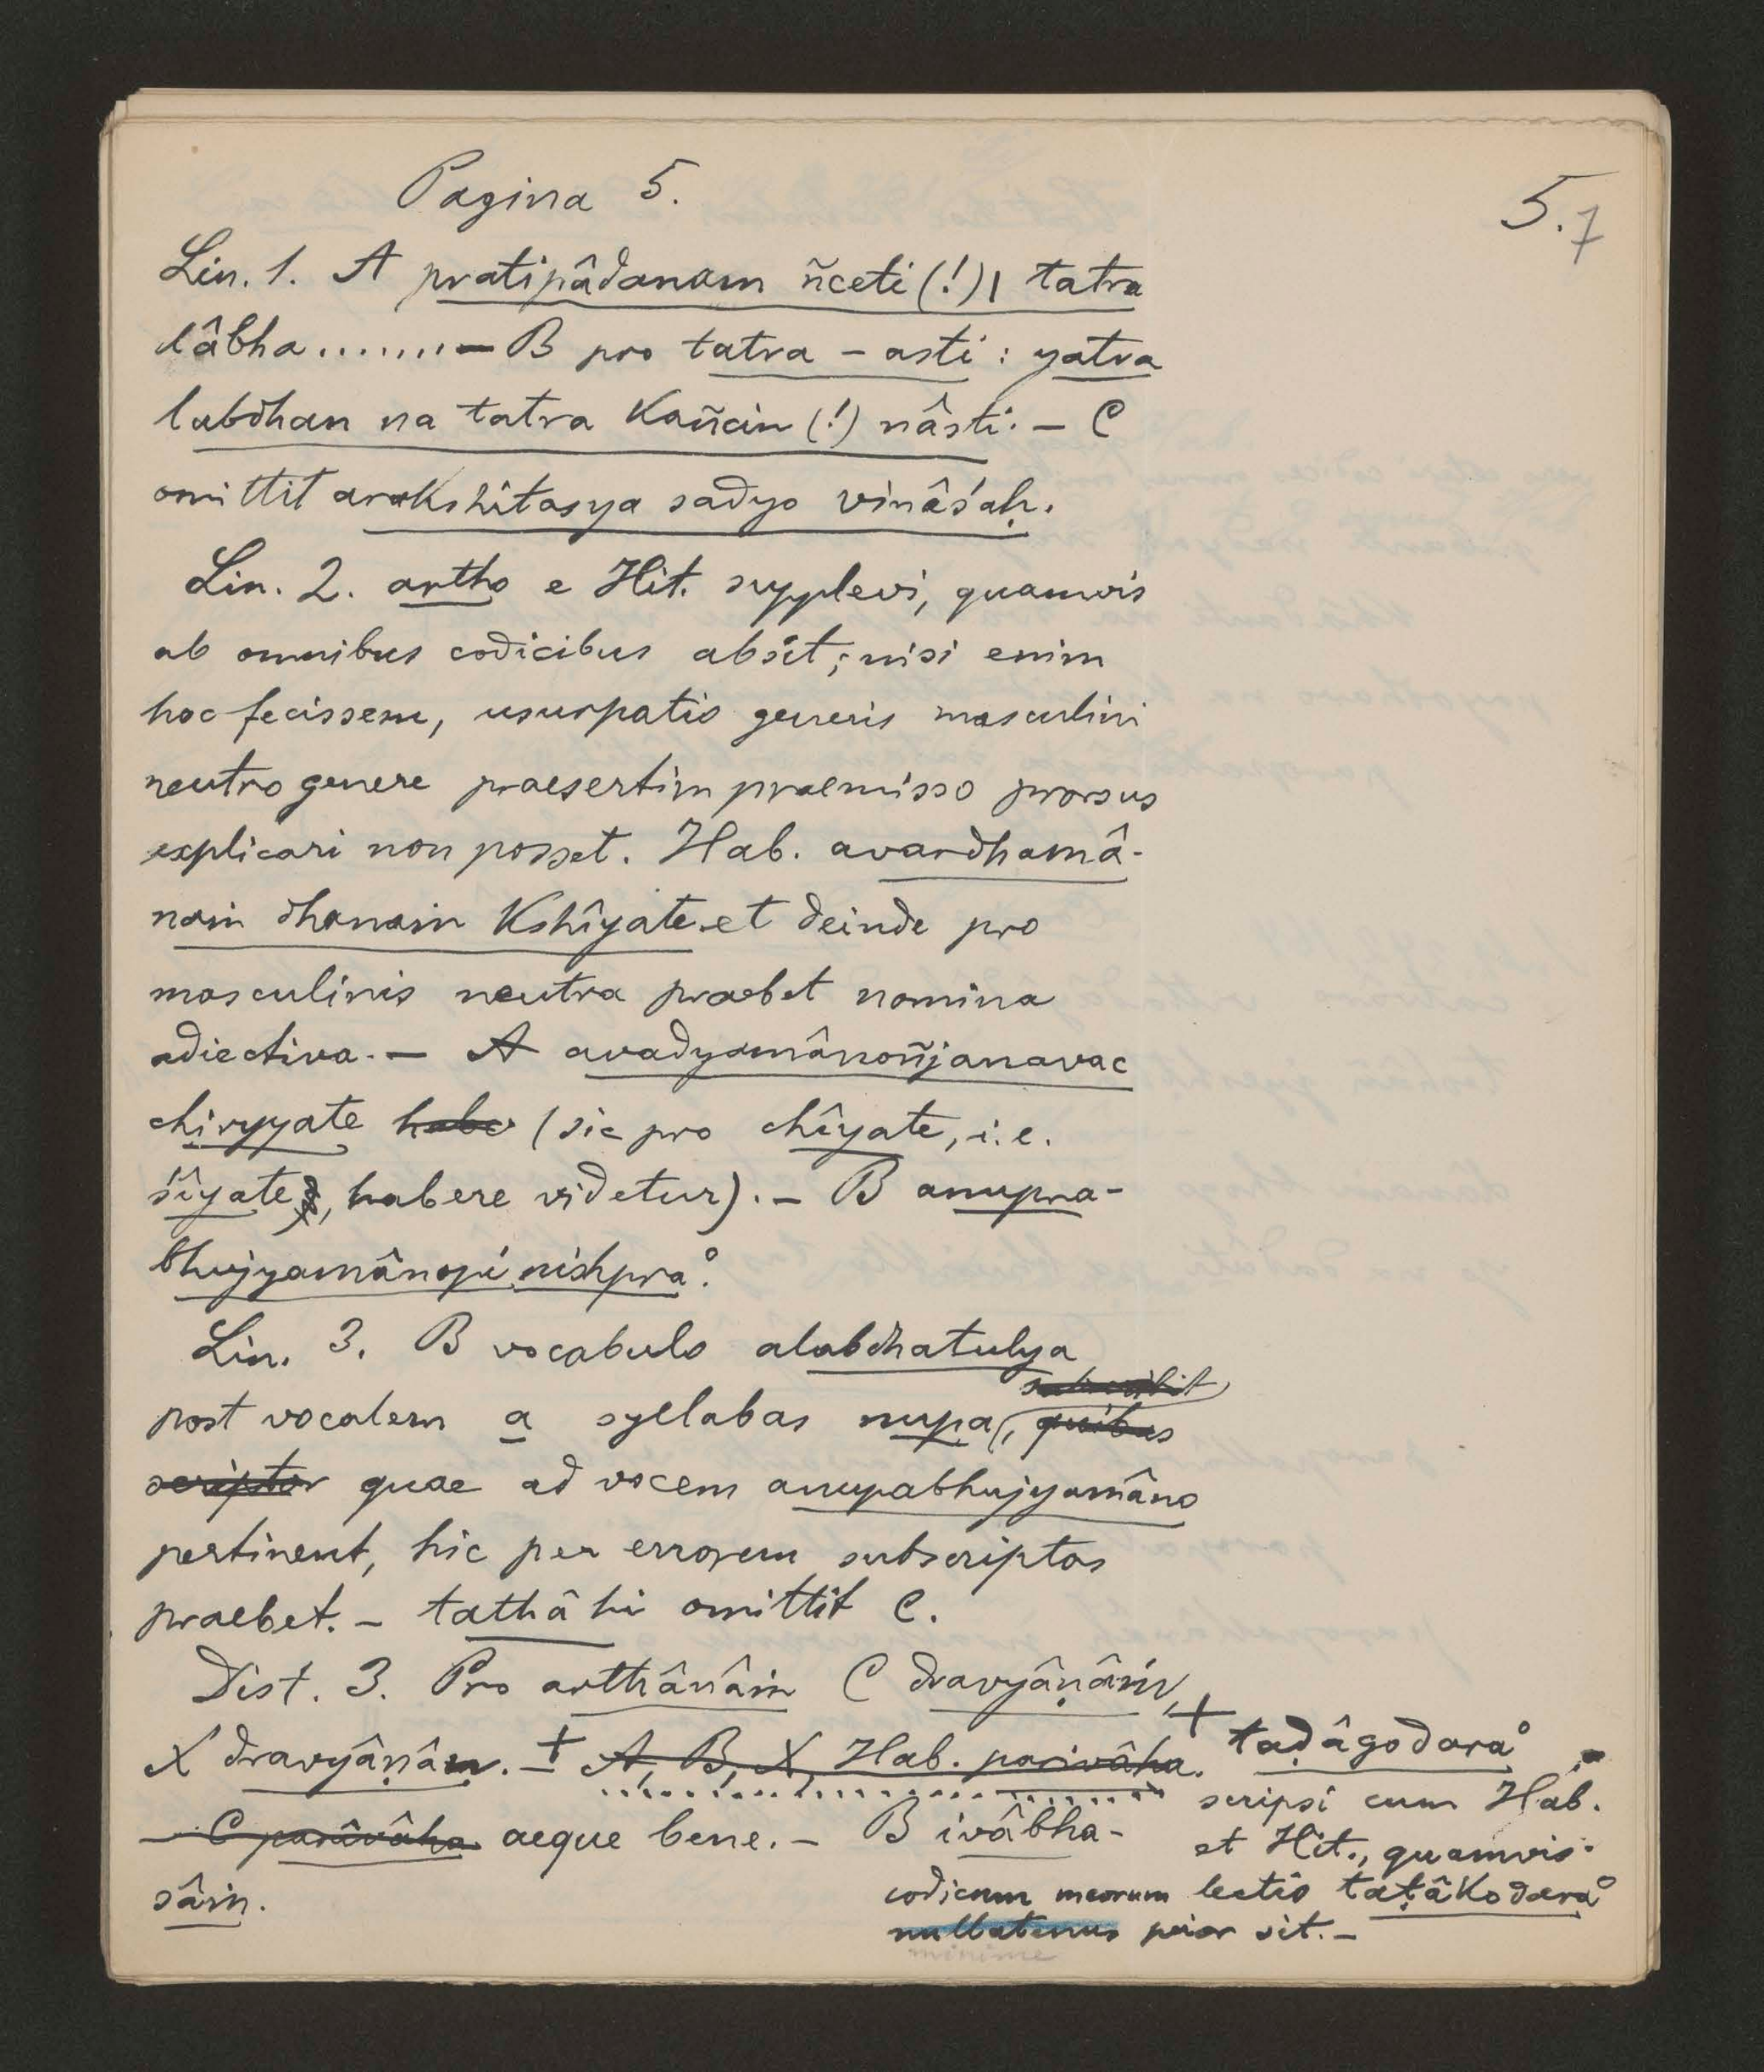 5. 7
Pagina 5.
Lin. 1. A pratipâdanam ñceti (!) | tatra
lâbha ....... — B pro tatra – asti : yatra
labdhan na tatra kañcin (!) nâsti. — C
omittit arakshitasya sadyo vinâśaḥ.
Lin. 2. artho e Hit. supplevi, quamvis
ab omnibus codicibus absit; nisi enim
hoc fecissem, usurpatio generis masculini
neutro genere praesertim praemisso prorsus
explicari non posset. Hab. avardhamâ-
naṁ dhanaṁ kshîyate et deinde pro
masculinis neutra praebet nomina
adiectiva. — A avadyamânoñjanavac
chiryyate habe (sic pro chîyate, i. e.
śîyate, habere videtur). — B anupra-
bhujyamânopi nishpra°.
Lin. 3. B vocabulo alabdhatulya
subscribit
post vocalem a syllabas nupa, quibus
scriptor quae ad vocem anupabhujyamâno
pertinent, hic per errorem subscriptas
praebet. — tathâ hi omittit C.
Dist. 3. Pro arthânâṁ C dravyâṇâṁ,
X dravyâṇâm. — + A, B, X, Hab. parivâha.
— C parîvâha aeque bene. — B ivâbha-
sâṁ.
+ taḍâgodara°
scripsi cum Hab.
et Hit., quamvis
codicum meorum lectio taṭâkodara°
nullatenus peior sit. —
minime